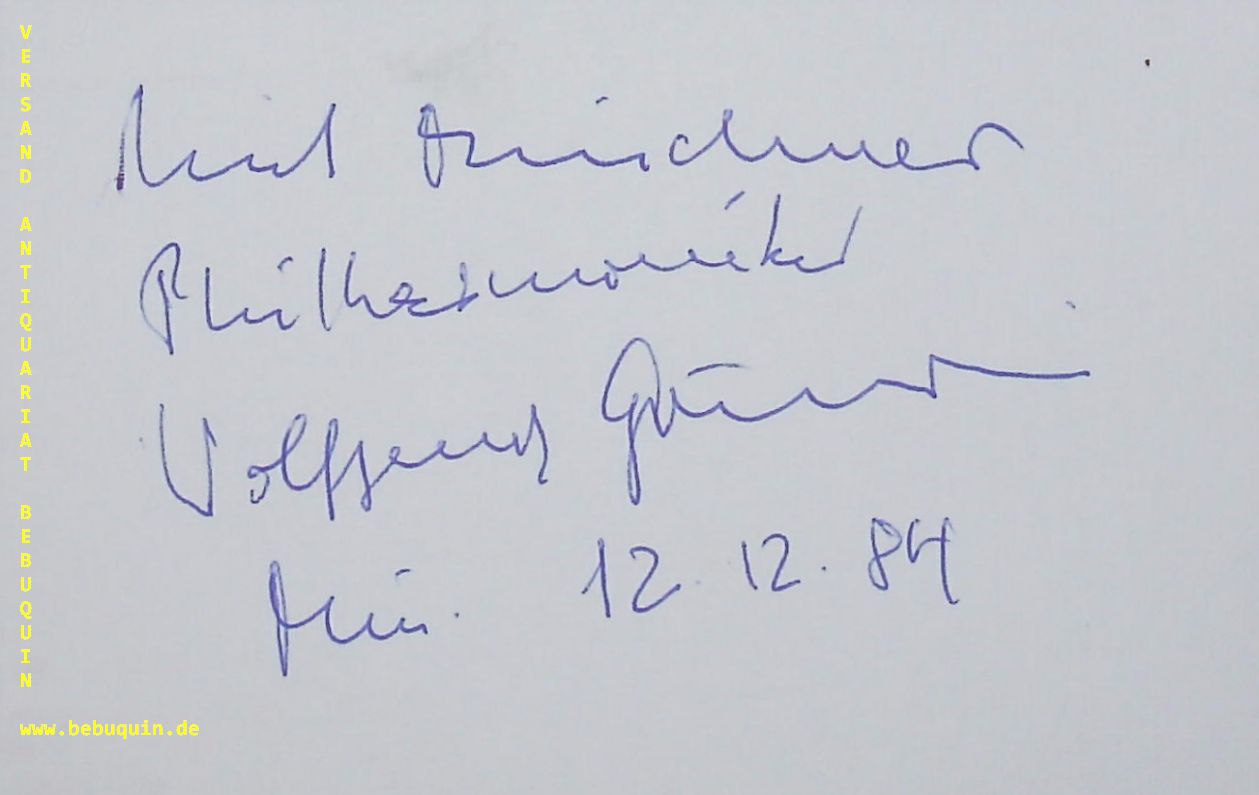 VERSAND ANTIQUARIAT BEBUQUIN
Münchner
Philharmoniker
Wolfgang
Mün. 12. 12. 84
www.bebuquin.de